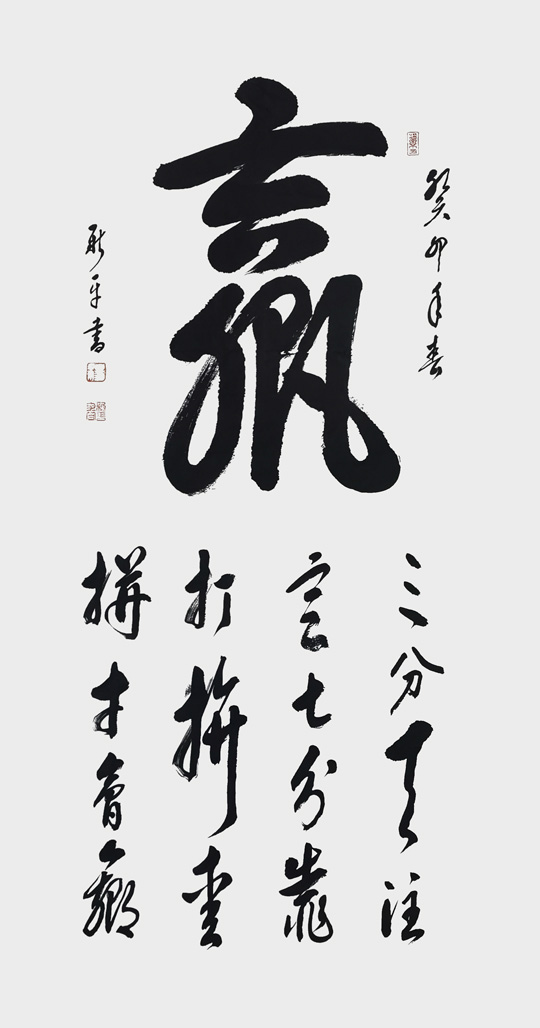 癸卯年春
赢
平書
三分天注
定七分靠
打拼爱
拼才會赢